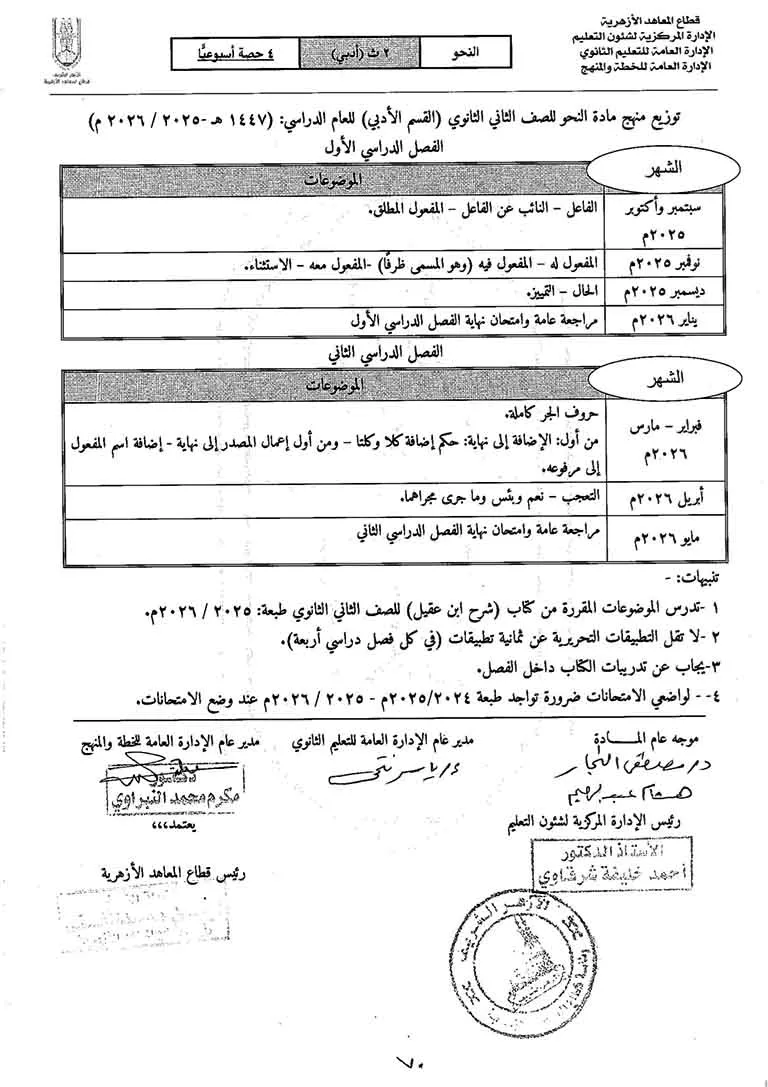 قطاع المعاهد الأزهرية
الإدارة المركزية لشئون التعليم
الإدارة العامة للتعليم الثانوي
الإدارة العامة للخطة والمنهج
النحو
٢ ث (أدبي)
٤ حصة أسبوعيًّا
الأزهر الشريف
قطاع المعاهد الأزهرية
توزيع منهج مادة النحو للصف الثاني الثانوي (القسم الأدبي) للعام الدراسي: (١٤٤٧ هـ -٢٠٢٥ / ٢٠٢٦ م)
الفصل الدراسي الأول
الشهر
الموضوعات
سبتمبر وأكتوبر
٢٠٢٥م
الفاعل – النائب عن الفاعل – المفعول المطلق.
نوفمبر ٢٠٢٥م
المفعول له – المفعول فيه (وهو المسمى ظرفًا) -المفعول معه – الاستثناء.
ديسمبر ٢٠٢٥م
الحال – التمييز.
يناير ٢٠٢٦م
مراجعة عامة وامتحان نهاية الفصل الدراسي الأول
الفصل الدراسي الثاني
الشهر
الموضوعات
فبراير – مارس
٢٠٢٦م
حروف الجر كاملة.
من أول: الإضافة إلى نهاية: حكم إضافة كلا وكلتا – ومن أول إعمال المصدر إلى نهاية - إضافة اسم المفعول
إلى مرفوعه.
أبريل ٢٠٢٦م
التعجب – نعم وبئس وما جرى مجراهما.
مايو ٢٠٢٦م
مراجعة عامة وامتحان نهاية الفصل الدراسي الثاني
تنبيهات: -
١ -تدرس الموضوعات المقررة من كتاب (شرح ابن عقيل) للصف الثاني الثانوي طبعة: ٢٠٢٥ / ٢٠٢٦م.
٢ -لا تقل التطبيقات التحريرية عن ثمانية تطبيقات (في كل فصل دراسي أربعة).
٣-يجاب عن تدريبات الكتاب داخل الفصل.
٤-- لواضعي الامتحانات ضرورة تواجد طبعة ٢٠٢٥/٢٠٢٤م - ٢٠٢٥ / ٢٠٢٦م عند وضع الامتحانات.
موجه عام المـــادة
مدير عام الإدارة العامة للتعليم الثانوي
مدير عام الإدارة العامة للخطة والمنهج
د/ مصطفى النجار
دكتور
مكرم محمد النبراوي
يعتمد،،،
رئيس الإدارة المركزية لشئون التعليم
الأستاذ الدكتور
أحمد خليفة شرقاوي
رئيس قطاع المعاهد الأزهرية
الأزهر الشريف
٧٠